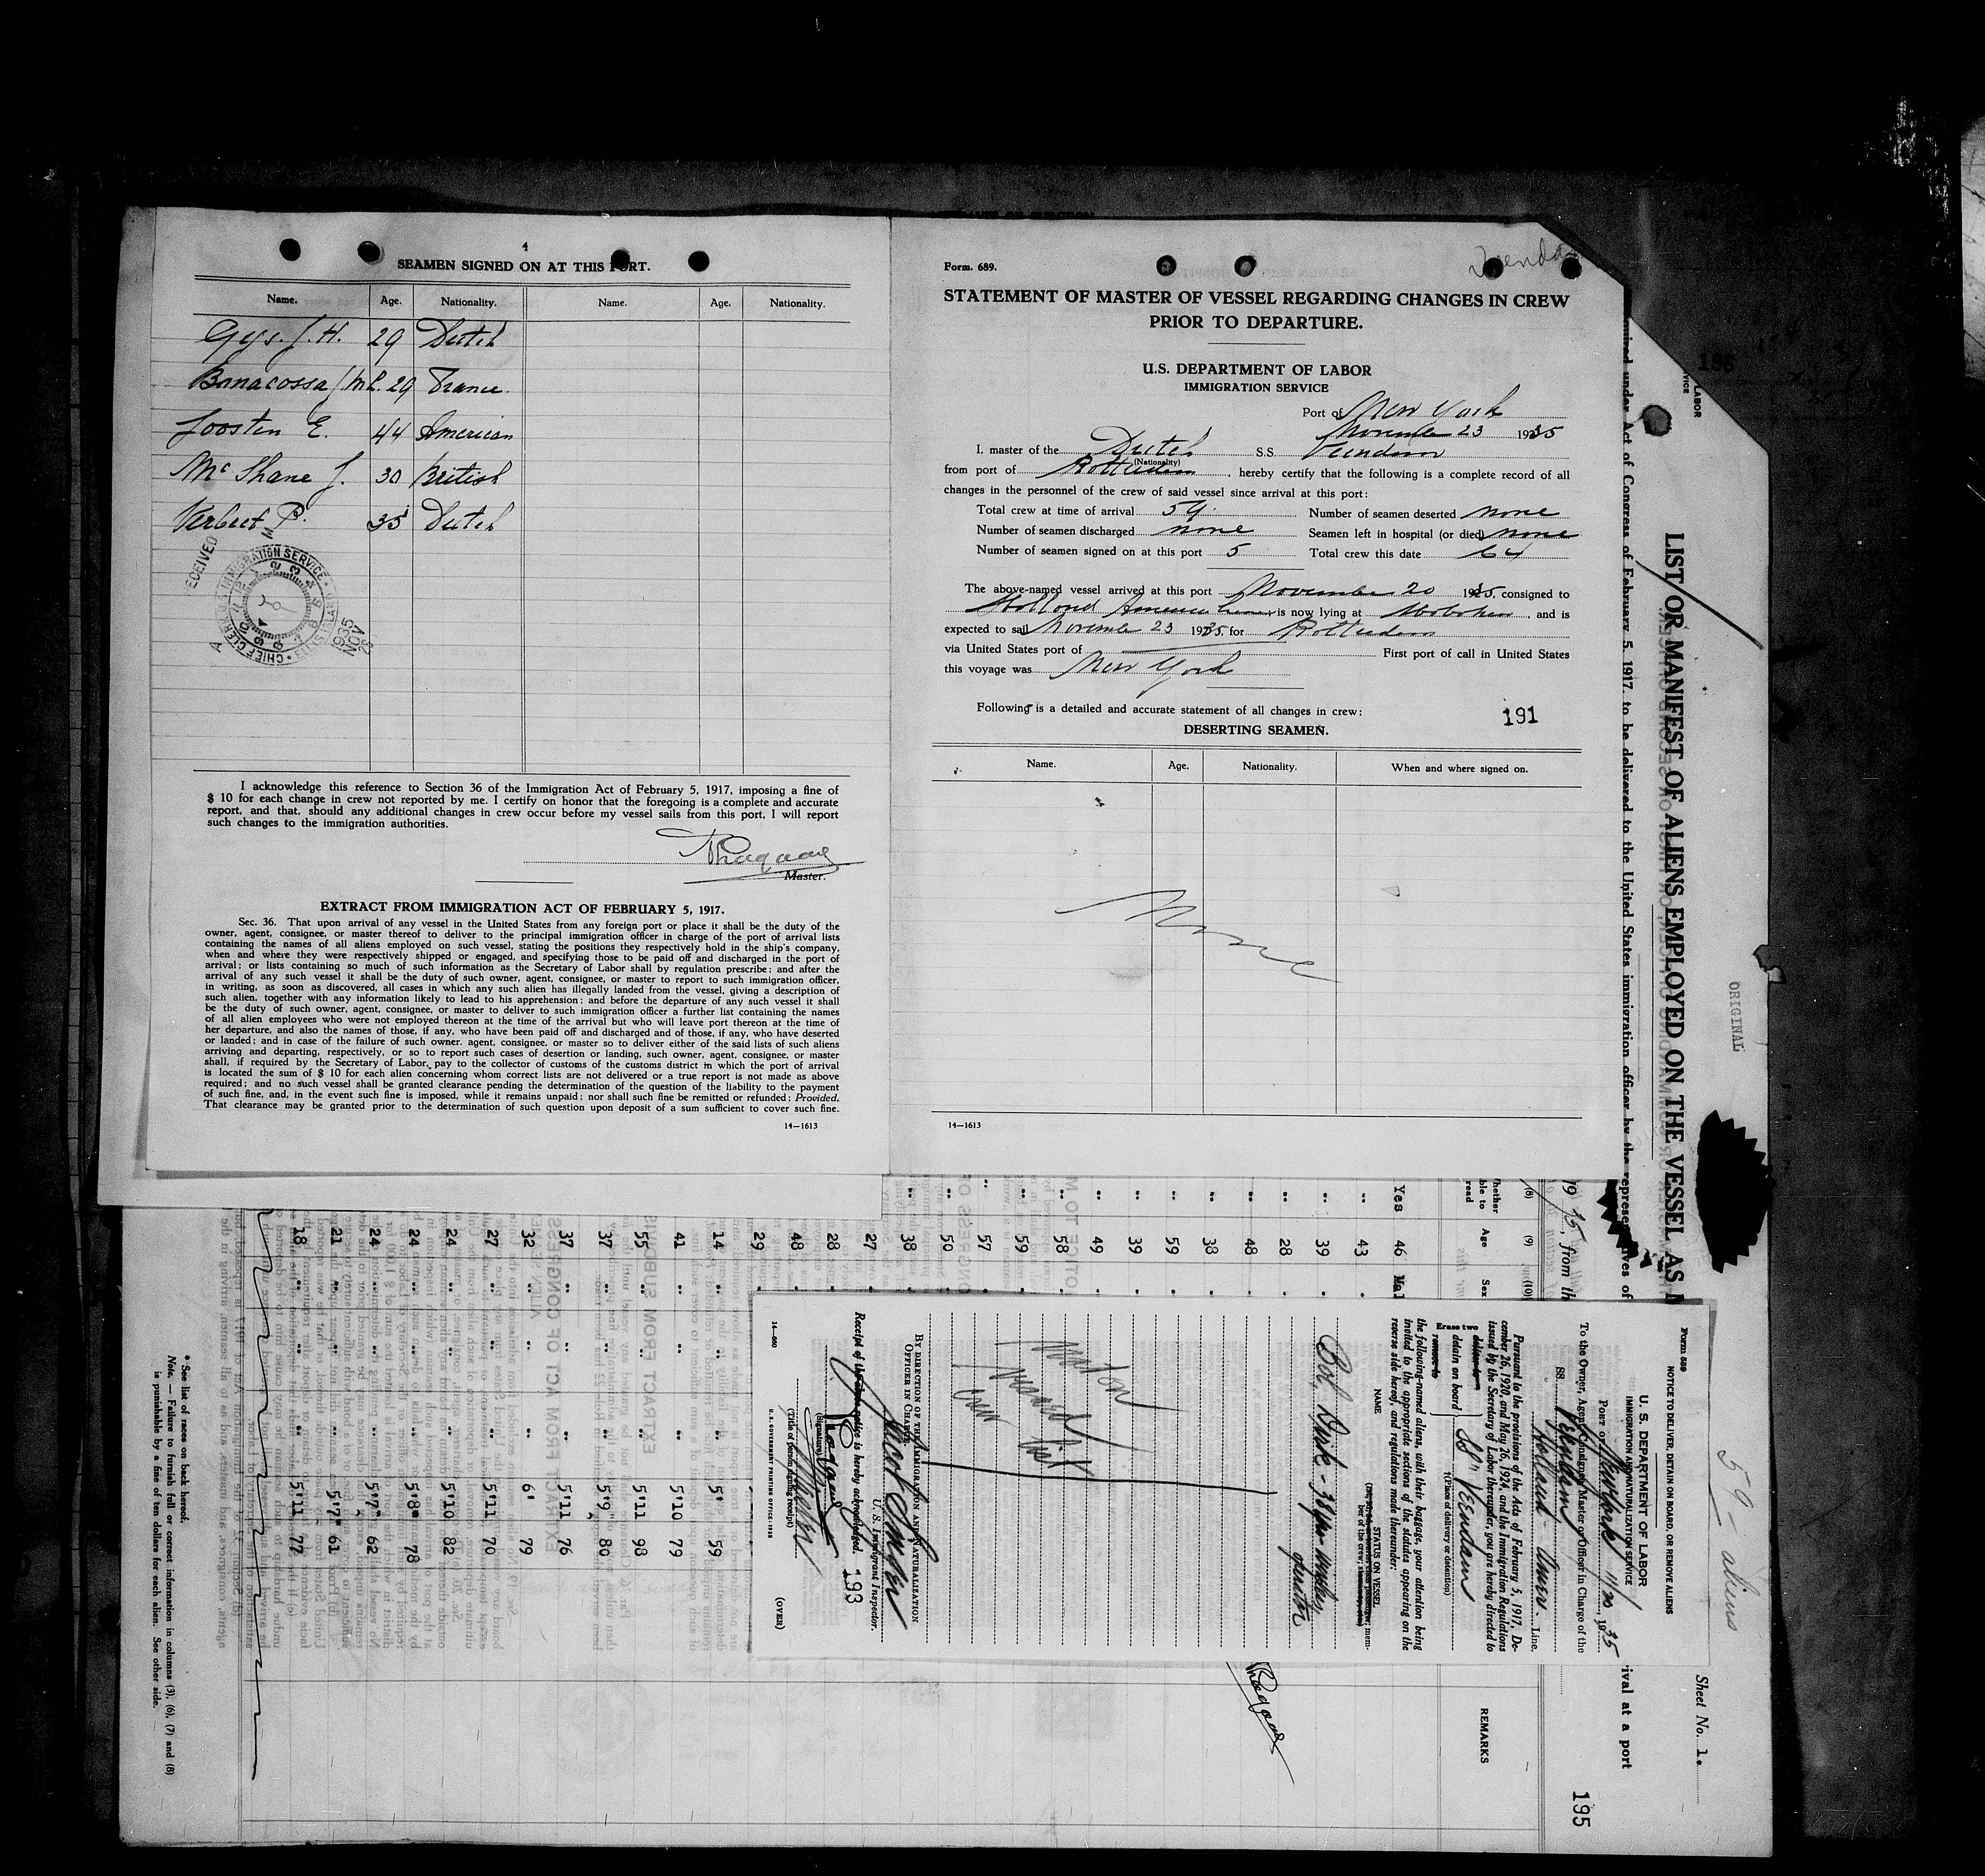 4
SEAMEN SIGNED ON AT THIS PORT.
Name. Age. Nationality. Name. Age. Nationality.
Gys. J. H. 29 Dutch
Bonacossa / M L. 29 France.
Joosten E. 44 American
Mc Shane J. 30 British
Verbeet P. 35 Dutch
RECEIVED
CHIEF CLERK U.S. IMMIGRATION SERVICE
1935
NOV
I acknowledge this reference to Section 36 of the Immigration Act of February 5, 1917, imposing a fine of
$ 10 for each change in crew not reported by me. I certify on honor that the foregoing is a complete and accurate
report, and that, should any additional changes in crew occur before my vessel sails from this port, I will report
such changes to the immigration authorities.
Master.
EXTRACT FROM IMMIGRATION ACT OF FEBRUARY 5, 1917.
Sec. 36. That upon arrival of any vessel in the United States from any foreign port or place it shall be the duty of the
owner, agent, consignee, or master thereof to deliver to the principal immigration officer in charge of the port of arrival lists
containing the names of all aliens employed on such vessel, stating the positions they respectively hold in the ship's company,
when and where they were respectively shipped or engaged, and specifying those to be paid off and discharged in the port of
arrival; or lists containing so much of such information as the Secretary of Labor shall by regulation prescribe; and after the
arrival of any such vessel it shall be the duty of such owner, agent, consignee, or master to report to such immigration officer,
in writing, as soon as discovered, all cases in which any such alien has illegally landed from the vessel, giving a description of
such alien, together with any information likely to lead to his apprehension; and before the departure of any such vessel it shall
be the duty of such owner, agent, consignee, or master to deliver to such immigration officer a further list containing the names
of all alien employees who were not employed thereon at the time of the arrival but who will leave port thereon at the time of
her departure, and also the names of those, if any, who have been paid off and discharged and of those, if any, who have deserted
or landed; and in case of the failure of such owner. agent, consignee, or master so to deliver either of the said lists of such aliens
arriving and departing, respectively, or so to report such cases of desertion or landing, such owner, agent, consignee, or master
shall, if required by the Secretary of Labor, pay to the collector of customs of the customs district in which the port of arrival
is located the sum of $ 10 for each alien concerning whom correct lists are not delivered or a true report is not made as above
required; and no such vessel shall be granted clearance pending the determination of the question of the liability to the payment
of such fine, and, in the event such fine is imposed, while it remains unpaid; nor shall such fine be remitted or refunded; Provided,
That clearance may be granted prior to the determination of such question upon deposit of a sum sufficient to cover such fine.
14—1613
Form. 689.
STATEMENT OF MASTER OF VESSEL REGARDING CHANGES IN CREW
PRIOR TO DEPARTURE.
U.S. DEPARTMENT OF LABOR
IMMIGRATION SERVICE
Port of New York
November 23 1935
I, master of the Dutch S.S. Veendam
(Nationality)
from port of Rotterdam, hereby certify that the following is a complete record of all
changes in the personnel of the crew of said vessel since arrival at this port:
Total crew at time of arrival 59. Number of seamen deserted none
Number of seamen discharged none Seamen left in hospital (or died) none
Number of seamen signed on at this port 5 Total crew this date 64
The above-named vessel arrived at this port November 20 1935, consigned to
Holland America Line, is now lying at Hoboken, and is
expected to sail November 23 1935, for Rotterdam
via United States port of First port of call in United States
this voyage was New York
Following is a detailed and accurate statement of all changes in crew:
191
DESERTING SEAMEN.
Name. Age. Nationality. When and where signed on.
None
14—1613
LIST OR MANIFEST OF ALIENS EMPLOYED ON THE VESSEL AS
required under Act of Congress of February 5, 1917, to be delivered to the United States immigration officer by the representatives of
ORIGINAL
Sheet No. 1.
59 - aliens
195
REMARKS
Form 559
NOTICE TO DELIVER, DETAIN ON BOARD, OR REMOVE ALIENS
U. S. DEPARTMENT OF LABOR
IMMIGRATION AND NATURALIZATION SERVICE
Port of New York 11/20, 1935
To the Owner, Agent, Consignee, Master or Officer in Charge of the
SS. Veendam Holland - Amer. Line.
Pursuant to the provisions of the Acts of February 5, 1917, De-
cember 26, 1920, and May 26, 1924, and the Immigration Regulations
issued by the Secretary of Labor thereunder, you are hereby directed to
Erase two
deliver to
detain on board SS "Veendam
remove to
(Place of delivery or detention)
the following-named aliens, with their baggage, your attention being
invited to the appropriate sections of the statutes appearing on the
reverse side hereof, and regulations made thereunder:
NAME STATUS ON VESSEL
Bol, Dirk - 38 yrs
BY DIRECTION OF THE IMMIGRATION AND NATURALIZATION
OFFICER IN CHARGE
U. S. Immigrant Inspector.
Receipt of the above notice is hereby acknowledged.
193
(Signature)
(Title of person signing receipt)
U. S. GOVERNMENT PRINTING OFFICE
(OVER)
Age
Sex
Yes 46
43
39
28
48
38
59
39
49
58
59
57
50
38
27
28
48
29
14 5' 59
41 5'10 79
55 5'11 98
37 5'9" 80
37 5'11 76
32 6' 79
27 5'11 70
24 5'10 82
24 5'8" 78
24 5'7" 62
21 5'7" 61
18 5'11 77
* See list of races on back hereof.
Note. — Failure to furnish full or correct information in columns (3), (6), (7) and (8)
is punishable by a fine of ten dollars for each alien. See other side.